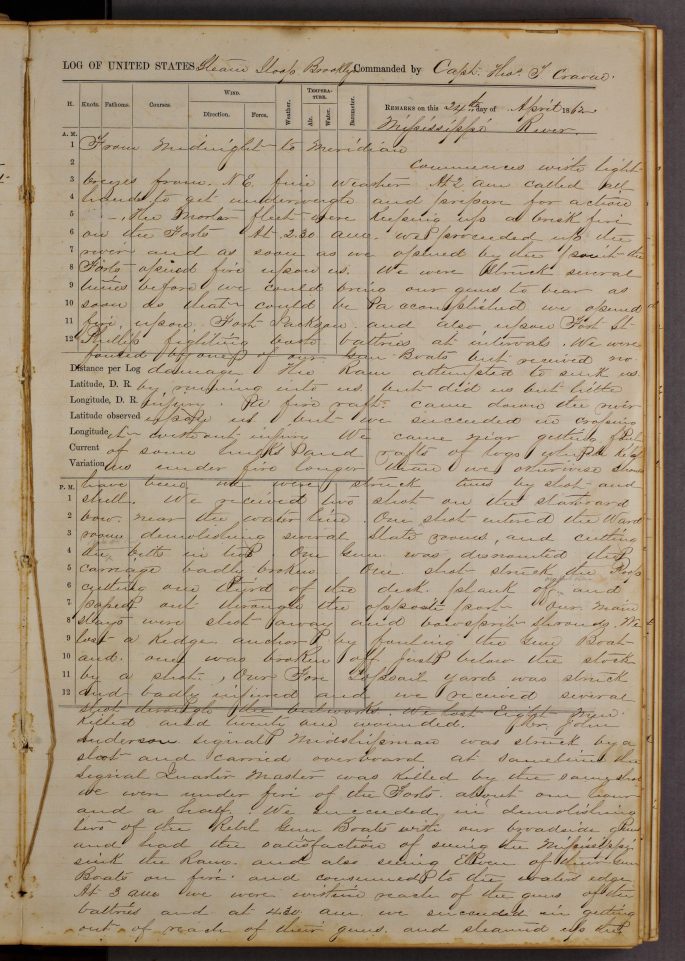 LOG OF UNITED STATES Steam Sloop Brooklyn Commanded by Capt. Thos. T Craven.
H. Knots. Fathoms. Courses. WIND. Direction. Force. Weather. TEMPERATURE. Air. Water. Barometer.
REMARKS on this 24th day of April 1862
Mississippi River.
A. M.
1 From Midnight to Meridian
2 Commences with light
3 breezes from N.E. fine weather At 2 am called all
4 hands to get underweigh and prepare for action
5 The Morter fleet were keeping up a brisk fire
6 on the Forts At 2.30 am. we proceeded up the
7 river and as soon as we opened by the point the
8 Forts opened fire upon us. We were struck several
9 times before we could bring our guns to bear as
10 soon as that could be accomplished we opened
11 fire upon Fort Jackson and also upon Fort St
12 Phillip fighting both battries at intervals. We were
fouled by one of our Gun Boats but received no
Distance per Log damage The Ram attempted to sink us
Latitude, D. R. by running into us but did us but little
Longitude, D. R. injury. fire raft came down the river
Latitude observed us but we succeeded in
Longitude without injury We came near getting
Current of some hulks and rafts of logs
Variation us under fire longer than we otherwise should
have been we were struck times by shot and
P. M.
1 shell. We received two shot on the starboard
2 bow near the water line One shot entered the Ward
3 room demolishing several State rooms, and cutting
4 the bitts in two. One Gun was dismounted the
5 carriage badly broken. One shot struck the Poop
6 cutting one third of the deck plank off and
7 passed out through the opposite port Our main
8 stays were shot away and bowsprit shrouds. We
9 lost a Kedge anchor by fouling the Gun Boat
10 and one was broken off just below the stock
11 by a shot, Our Fore Topsail yard was struck
12 and badly injured and we received several
shot through the bulworks We lost Eight men
killed and twenty one wounded. Mr John
Anderson signal Midshipman was struck by a
shot and carried overboard at sametime the
signal Quarter Master was killed by the same shot
we were under fire of the Forts about one hour
and a half We succeeded in demolishing
two of the Rebel Gun Boats with our broadside guns
and had the satisfaction of seeing the Mississippi
sink the Ram and also seeing Eleven of their Gun
Boats on fire and consumed to the waters edge
At 3 am we were within reach of the guns of the
battries and at 4.30 am we succeeded in getting
out of reach of their guns and steamed up the